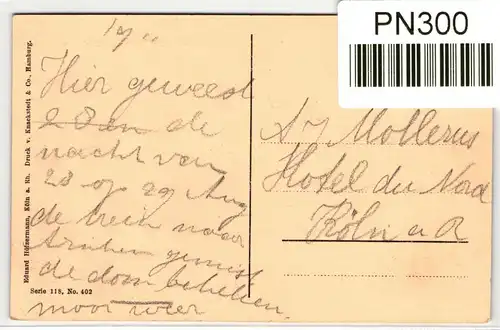 PN300
19 11
Hier geweest
28 en de
nacht van
28 op 29 Aug
de trein naar
Arnhem gemist
de dom bekeken
mooi weer
A J Mollerus
Hotel du Nord
Köln a R
Eduard Hülsermann, Köln a. Rh. Druck v. Knackstedt & Co., Hamburg.
Serie 118, No. 402